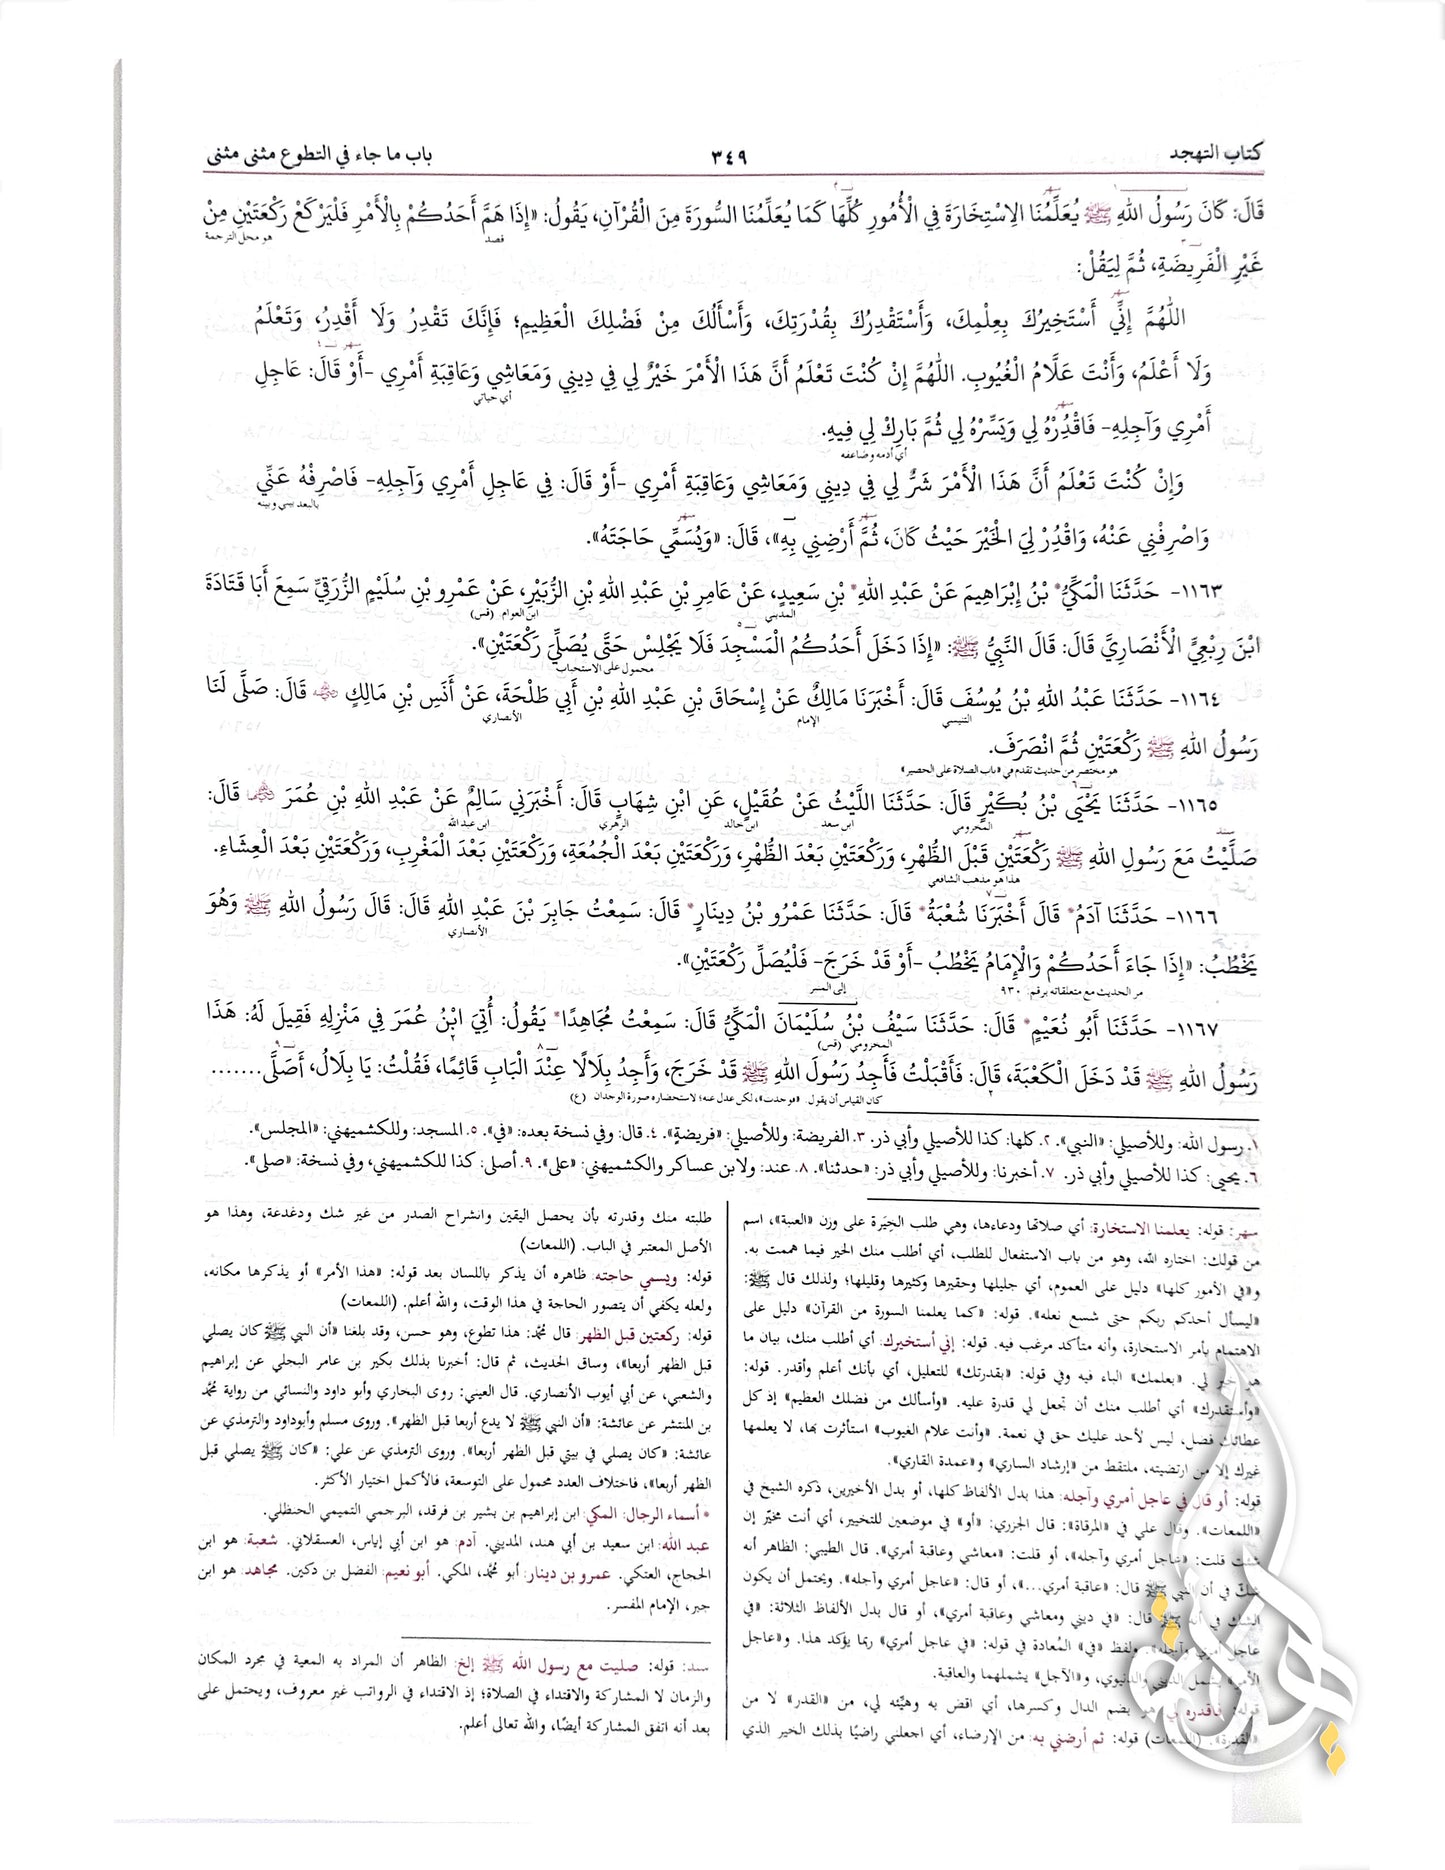 كتاب التهجد
٣٤٩
باب ما جاء في التطوع مثنى مثنى
قَالَ: كَانَ رَسُولُ اللهِ ﷺ يُعَلِّمُنَا الِاسْتِخَارَةَ فِي الْأُمُورِ كُلِّهَا كَمَا يُعَلِّمُنَا السُّورَةَ مِنَ الْقُرْآنِ، يَقُولُ: «إِذَا هَمَّ أَحَدُكُمْ بِالْأَمْرِ فَلْيَرْكَعْ رَكْعَتَيْنِ مِنْ
قصد
هو محل الترجمة
غَيْرِ الْفَرِيضَةِ، ثُمَّ لِيَقُلْ:
اللّٰهُمَّ إِنِّي أَسْتَخِيرُكَ بِعِلْمِكَ، وَأَسْتَقْدِرُكَ بِقُدْرَتِكَ، وَأَسْأَلُكَ مِنْ فَضْلِكَ الْعَظِيمِ؛ فَإِنَّكَ تَقْدِرُ وَلَا أَقْدِرُ، وَتَعْلَمُ
وَلَا أَعْلَمُ، وَأَنْتَ عَلَّامُ الْغُيُوبِ. اللّٰهُمَّ إِنْ كُنْتَ تَعْلَمُ أَنَّ هَذَا الْأَمْرَ خَيْرٌ لِي فِي دِينِي وَمَعَاشِي وَعَاقِبَةِ أَمْرِي -أَوْ قَالَ: عَاجِلِ
أي حياتي
أَمْرِي وَآجِلِهِ- فَاقْدُِرْهُ لِي وَيَسِّرْهُ لِي ثُمَّ بَارِكْ لِي فِيهِ.
أي أدمه وضاعفه
وَإِنْ كُنْتَ تَعْلَمُ أَنَّ هَذَا الْأَمْرَ شَرٌّ لِي فِي دِينِي وَمَعَاشِي وَعَاقِبَةِ أَمْرِي -أَوْ قَالَ: فِي عَاجِلِ أَمْرِي وَآجِلِهِ- فَاصْرِفْهُ عَنِّي
بالبعد بيني وبينه
وَاصْرِفْنِي عَنْهُ، وَاقْدُرْ لِيَ الْخَيْرَ حَيْثُ كَانَ، ثُمَّ أَرْضِنِي بِهِ»، قَالَ: «وَيُسَمِّي حَاجَتَهُ».
١١٦٣- حَدَّثَنَا الْمَكِّيُّ* بْنُ إِبْرَاهِيمَ عَنْ عَبْدِ اللهِ* بْنِ سَعِيدٍ، عَنْ عَامِرِ بْنِ عَبْدِ اللهِ بْنِ الزُّبَيْرِ، عَنْ عَمْرِو بْنِ سُلَيْمٍ الزُّرَقِيِّ سَمِعَ أَبَا قَتَادَةَ
المديني
ابن العوام. (قس)
ابْنَ رِبْعِيٍّ الْأَنْصَارِيَّ قَالَ: قَالَ النَّبِيُّ ﷺ: «إِذَا دَخَلَ أَحَدُكُمُ الْمَسْجِدَ فَلَا يَجْلِسْ حَتَّى يُصَلِّيَ رَكْعَتَيْنِ».
محمول على الاستحباب
١١٦٤- حَدَّثَنَا عَبْدُ اللهِ بْنُ يُوسُفَ قَالَ: أَخْبَرَنَا مَالِكٌ عَنْ إِسْحَاقَ بْنِ عَبْدِ اللهِ بْنِ أَبِي طَلْحَةَ، عَنْ أَنَسِ بْنِ مَالِكٍ ﵁ قَالَ: صَلَّى لَنَا
التنيسي
الإمام
الأنصاري
رَسُولُ اللهِ ﷺ رَكْعَتَيْنِ ثُمَّ انْصَرَفَ.
هو مختصر من حديث تقدم في «باب الصلاة على الحصير»
١١٦٥- حَدَّثَنَا يَحْيَى بْنُ بُكَيْرٍ قَالَ: حَدَّثَنَا اللَّيْثُ عَنْ عُقَيْلٍ، عَنِ ابْنِ شِهَابٍ قَالَ: أَخْبَرَنِي سَالِمٌ عَنْ عَبْدِ اللهِ بْنِ عُمَرَ ﵄ قَالَ:
المخرومي
ابن سعد
ابن خالد
الزهري
ابن عبد الله
صَلَّيْتُ مَعَ رَسُولِ اللهِ ﷺ رَكْعَتَيْنِ قَبْلَ الظُّهْرِ، وَرَكْعَتَيْنِ بَعْدَ الظُّهْرِ، وَرَكْعَتَيْنِ بَعْدَ الْجُمُعَةِ، وَرَكْعَتَيْنِ بَعْدَ الْمَغْرِبِ، وَرَكْعَتَيْنِ بَعْدَ الْعِشَاءِ.
هذا هو مذهب الشافعي
١١٦٦- حَدَّثَنَا آدَمُ* قَالَ أَخْبَرَنَا شُعْبَةُ* قَالَ: حَدَّثَنَا عَمْرُو بْنُ دِينَارٍ* قَالَ: سَمِعْتُ جَابِرَ بْنَ عَبْدِ اللهِ قَالَ: قَالَ رَسُولُ اللهِ ﷺ وَهُوَ
الأنصاري
يَخْطُبُ: «إِذَا جَاءَ أَحَدُكُمْ وَالْإِمَامُ يَخْطُبُ -أَوْ قَدْ خَرَجَ- فَلْيُصَلِّ رَكْعَتَيْنِ».
مر الحديث مع متعلقاته برقم: ٩٣٠
إلى المنبر
١١٦٧- حَدَّثَنَا أَبُو نُعَيْمٍ* قَالَ: حَدَّثَنَا سَيْفُ بْنُ سُلَيْمَانَ الْمَكِّيُّ قَالَ: سَمِعْتُ مُجَاهِدًا* يَقُولُ: أُتِيَ ابْنُ عُمَرَ فِي مَنْزِلِهِ فَقِيلَ لَهُ: هَذَا
المخرومي (قس)
رَسُولُ اللهِ ﷺ قَدْ دَخَلَ الْكَعْبَةَ، قَالَ: فَأَقْبَلْتُ فَأَجِدُ رَسُولَ اللهِ ﷺ قَدْ خَرَجَ، وَأَجِدُ بِلَالًا عِنْدَ الْبَابِ قَائِمًا، فَقُلْتُ: يَا بِلَالُ، أَصَلَّى.......
كان القياس أن يقول: «فوجدت»، لكن عدل عنه؛ لاستحضاره صورة الوجدان (ع)
١. رسول الله: وللأصيلي: «النبي». ٢. كلها: كذا للأصيلي وأبي ذر. ٣. الفريضة: وللأصيلي: «فريضةٍ». ٤. قال: وفي نسخة بعده: «في». ٥. المسجد: وللكشميهني: «المجلس».
٦. يحيى: كذا للأصيلي وأبي ذر. ٧. أخبرنا: وللأصيلي وأبي ذر: «حدثنا». ٨. عند: ولابن عساكر والكشميهني: «على». ٩. أصلى: كذا للكشميهني، وفي نسخة: «صلى».
سهر: قوله: يعلمنا الاستخارة: أي صلاتها ودعاءها، وهي طلب الخِيَرة على وزن «العنبة»، اسم
من قولك: اختاره الله، وهو من باب الاستفعال للطلب، أي أطلب منك الخير فيما هممت به.
و«في الأمور كلها» دليل على العموم، أي جليلها وحقيرها وكثيرها وقليلها؛ ولذلك قال ﷺ:
«ليسأل أحدكم ربكم حتى شسع نعله». قوله: «كما يعلمنا السورة من القرآن» دليل على
الاهتمام بأمر الاستخارة، وأنه متأكد مرغب فيه. قوله: إني أستخيرك: أي أطلب منك، بيان ما
هو خير لي. «بعلمك» الباء فيه وفي قوله: «بقدرتك» للتعليل، أي بأنك أعلم وأقدر. قوله:
«وأستقدرك» أي أطلب منك أن تجعل لي قدرة عليه. «وأسألك من فضلك العظيم» إذ كل
عطائك فضل، ليس لأحد عليك حق في نعمة. «وأنت علام الغيوب» استأثرت بها، لا يعلمها
غيرك إلا من ارتضيته، ملتقط من «إرشاد الساري» و«عمدة القاري».
قوله: أو قال في عاجل أمري وآجله: هذا بدل الألفاظ كلها، أو بدل الأخيرين، ذكره الشيخ في
«اللمعات». وقال علي في «المرقاة»: قال الجزري: «أو» في موضعين للتخيير، أي أنت مخيّر إن
شئت قلت: «عاجل أمري وآجله»، أو قلت: «معاشي وعاقبة أمري». قال الطيبي: الظاهر أنه
شكّ في أن النبي ﷺ قال: «عاقبة أمري...»، أو قال: «عاجل أمري وآجله». ويحتمل أن يكون
الشك في أنه ﷺ قال: «في ديني ومعاشي وعاقبة أمري»، أو قال بدل الألفاظ الثلاثة: «في
عاجل أمري وآجله». ولفظ «في» المُعادة في قوله: «في عاجل أمري» ربما يؤكد هذا. و«عاجل
الأمر» يشمل الديني والدنيوي، و«الآجل» يشملهما والعاقبة.
قوله: فاقدره لي: هو بضم الدال وكسرها، أي اقض به وهيِّئه لي، من «القدر» لا من
«القدرة». (اللمعات) قوله: ثم أرضني به: من الإرضاء، أي اجعلني راضيًا بذلك الخير الذي
طلبته منك وقدرته بأن يحصل اليقين وانشراح الصدر من غير شك ودغدغة، وهذا هو
الأصل المعتبر في الباب. (اللمعات)
قوله: ويسمي حاجته: ظاهره أن يذكر باللسان بعد قوله: «هذا الأمر» أو يذكرها مكانه،
ولعله يكفي أن يتصور الحاجة في هذا الوقت، والله أعلم. (اللمعات)
قوله: ركعتين قبل الظهر: قال محمد: هذا تطوع، وهو حسن، وقد بلغنا «أن النبي ﷺ كان يصلي
قبل الظهر أربعا»، وساق الحديث، ثم قال: أخبرنا بذلك بكير بن عامر البجلي عن إبراهيم
والشعبي، عن أبي أيوب الأنصاري. قال العيني: روى البخاري وأبو داود والنسائي من رواية محمد
بن المنتشر عن عائشة: «أن النبي ﷺ لا يدع أربعا قبل الظهر». وروى مسلم وأبوداود والترمذي عن
عائشة: «كان يصلي في بيتي قبل الظهر أربعا». وروى الترمذي عن علي: «كان ﷺ يصلي قبل
الظهر أربعا»، فاختلاف العدد محمول على التوسعة، فالأكمل اختيار الأكثر.
* أسماء الرجال: المكي: ابن إبراهيم بن بشير بن فرقد، البرجمي التميمي الحنظلي.
عبد الله: ابن سعيد بن أبي هند، المديني. آدم: هو ابن أبي إياس، العسقلاني. شعبة: هو ابن
الحجاج، العتكي. عمرو بن دينار: أبو محمد، المكي. أبو نعيم: الفضل بن دكين. مجاهد: هو ابن
جبر، الإمام المفسر.
سند: قوله: صليت مع رسول الله ﷺ إلخ: الظاهر أن المراد به المعية في مجرد المكان
والزمان لا المشاركة والاقتداء في الصلاة؛ إذ الاقتداء في الرواتب غير معروف، ويحتمل على
بعد أنه اتفق المشاركة أيضًا، والله تعالى أعلم.